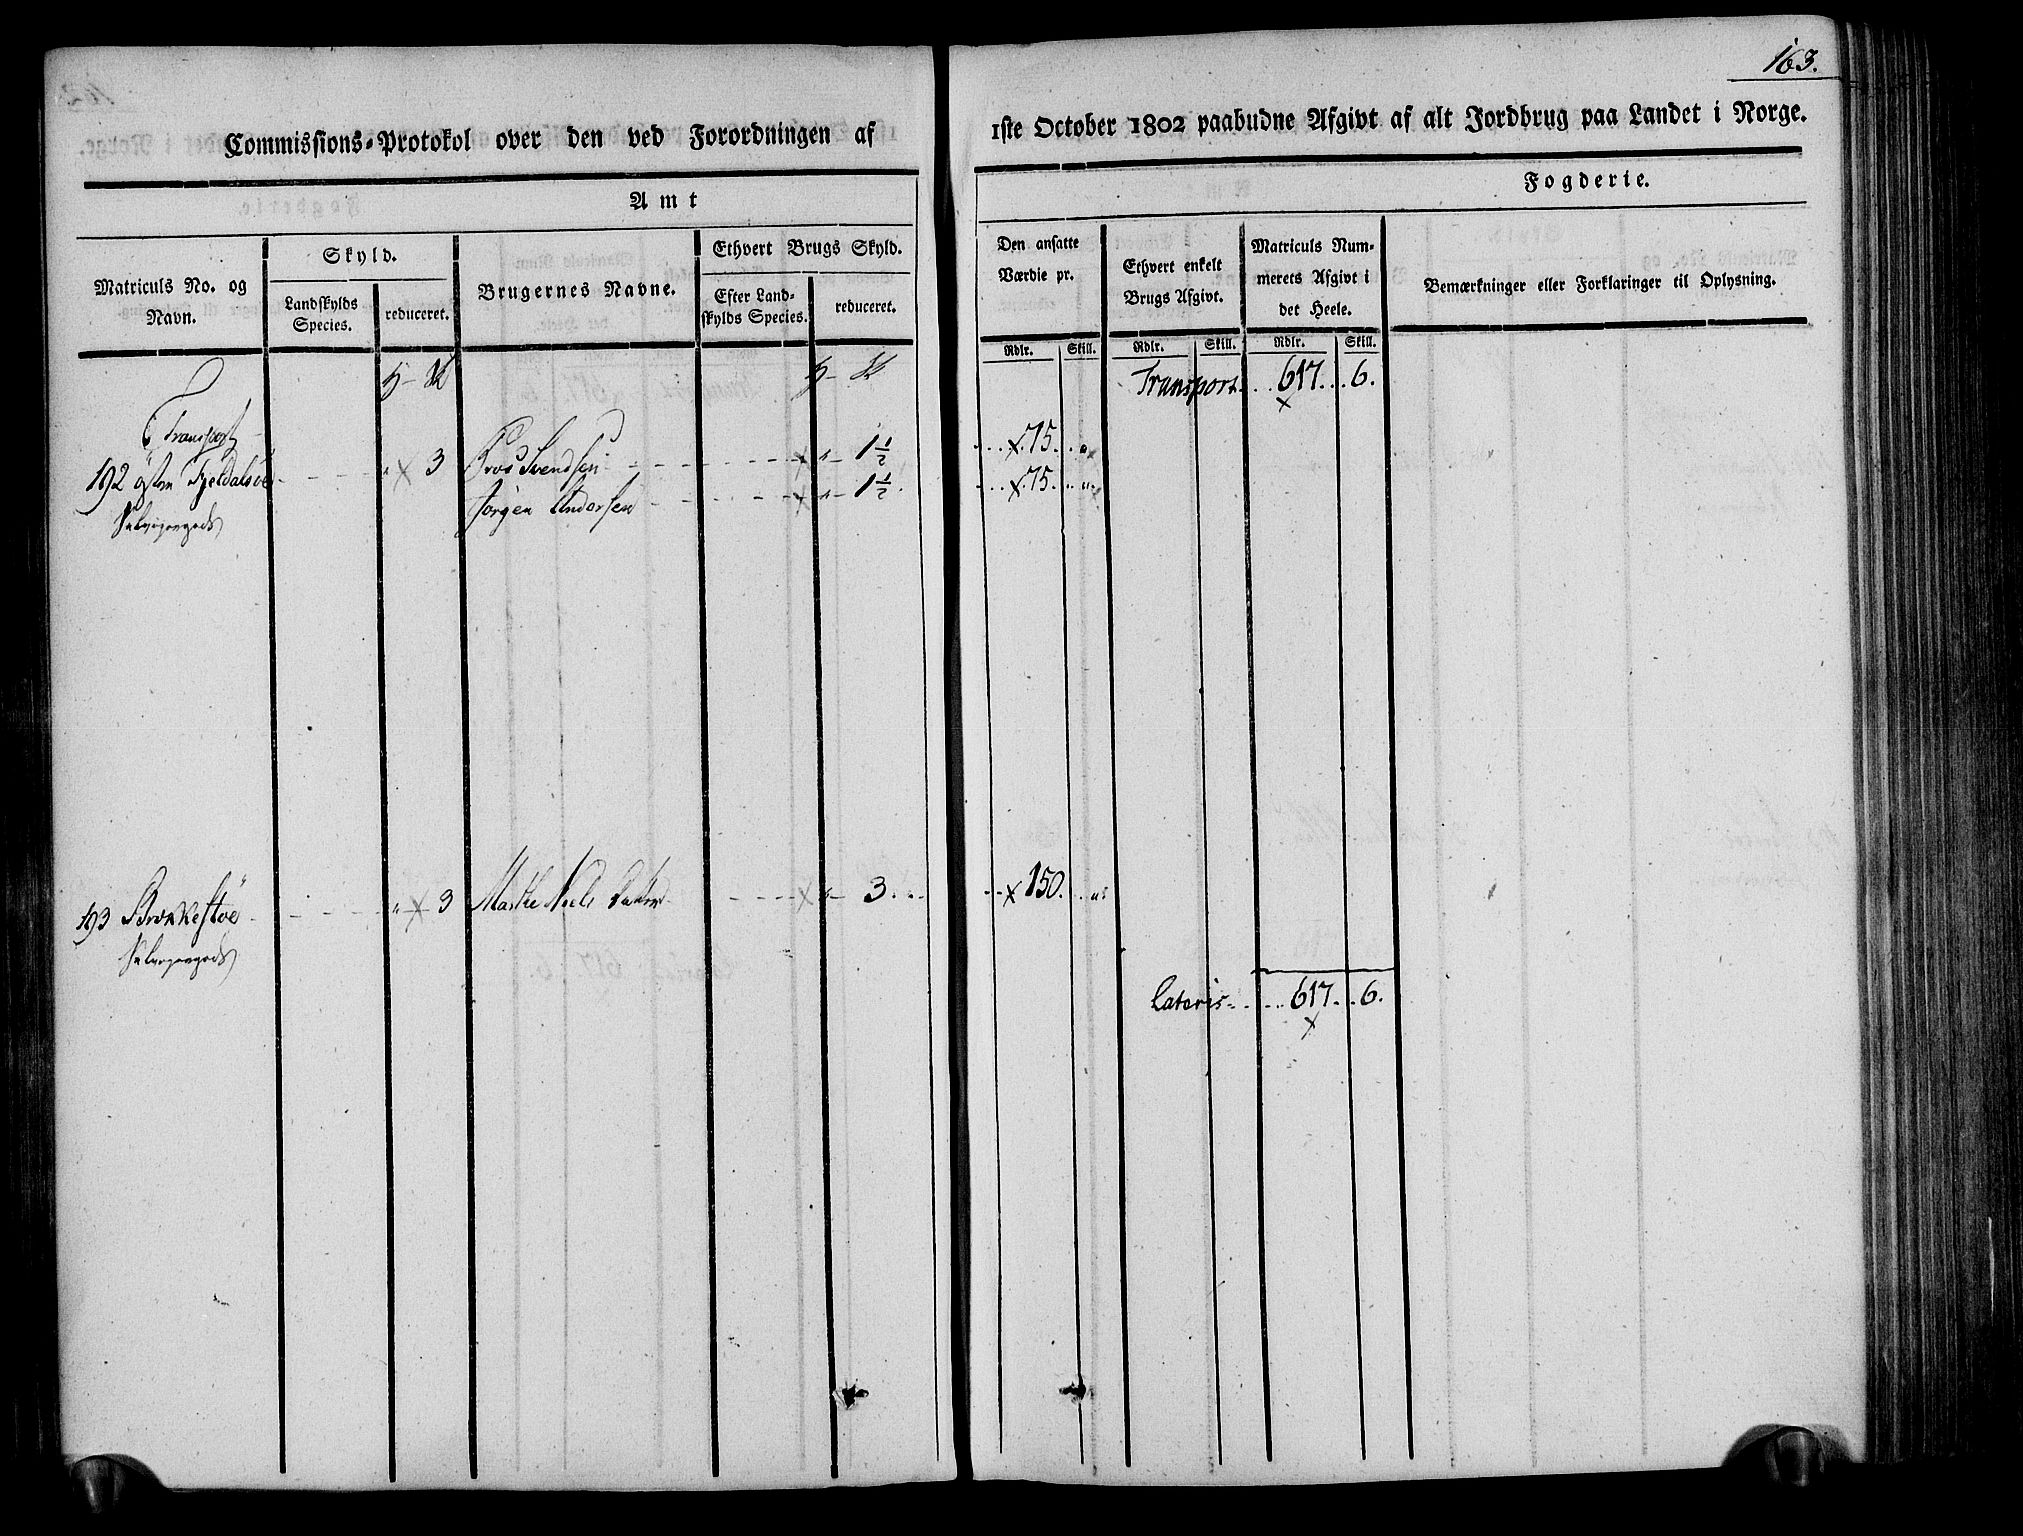 163.
Commissions-Protokol over den ved Forordningen af 1ste October 1802 paabudne Afgivt af alt Jordbrug paa Landet i Norge.
Amt Fogderie.
Matriculs No. og Navn.
Skyld.
Landskylds Species.
reduceret.
Brugernes Navne.
Ethvert Brugs Skyld.
Efter Landskylds Species.
reduceret.
Den ansatte Værdie pr.
Ethvert enkelt Brugs Afgivt.
Matriculs Nummerets Afgivt i det Heele.
Bemærkninger eller Forklaringer til Oplysning.
Rdlr. Skill. Rdlr. Skill. Rdlr. Skill.
Transport 617. 6.
Transport
192 östre 3 Svendsen 1½ 75.
Jörgen Andersen 1½ 75.
193 3 Niels 3 150.
Lateris 617. 6.